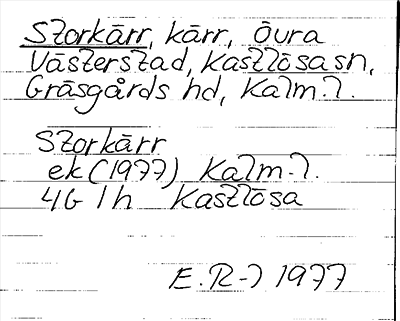 Storkärr, kärr, övra
Västerstad, Kastlösa sn,
Gräsgårds hd, Kalm. l.
Storkärr
ek (1977) Kalm. l.
4G 1h Kastlösa
E. R-) 1977